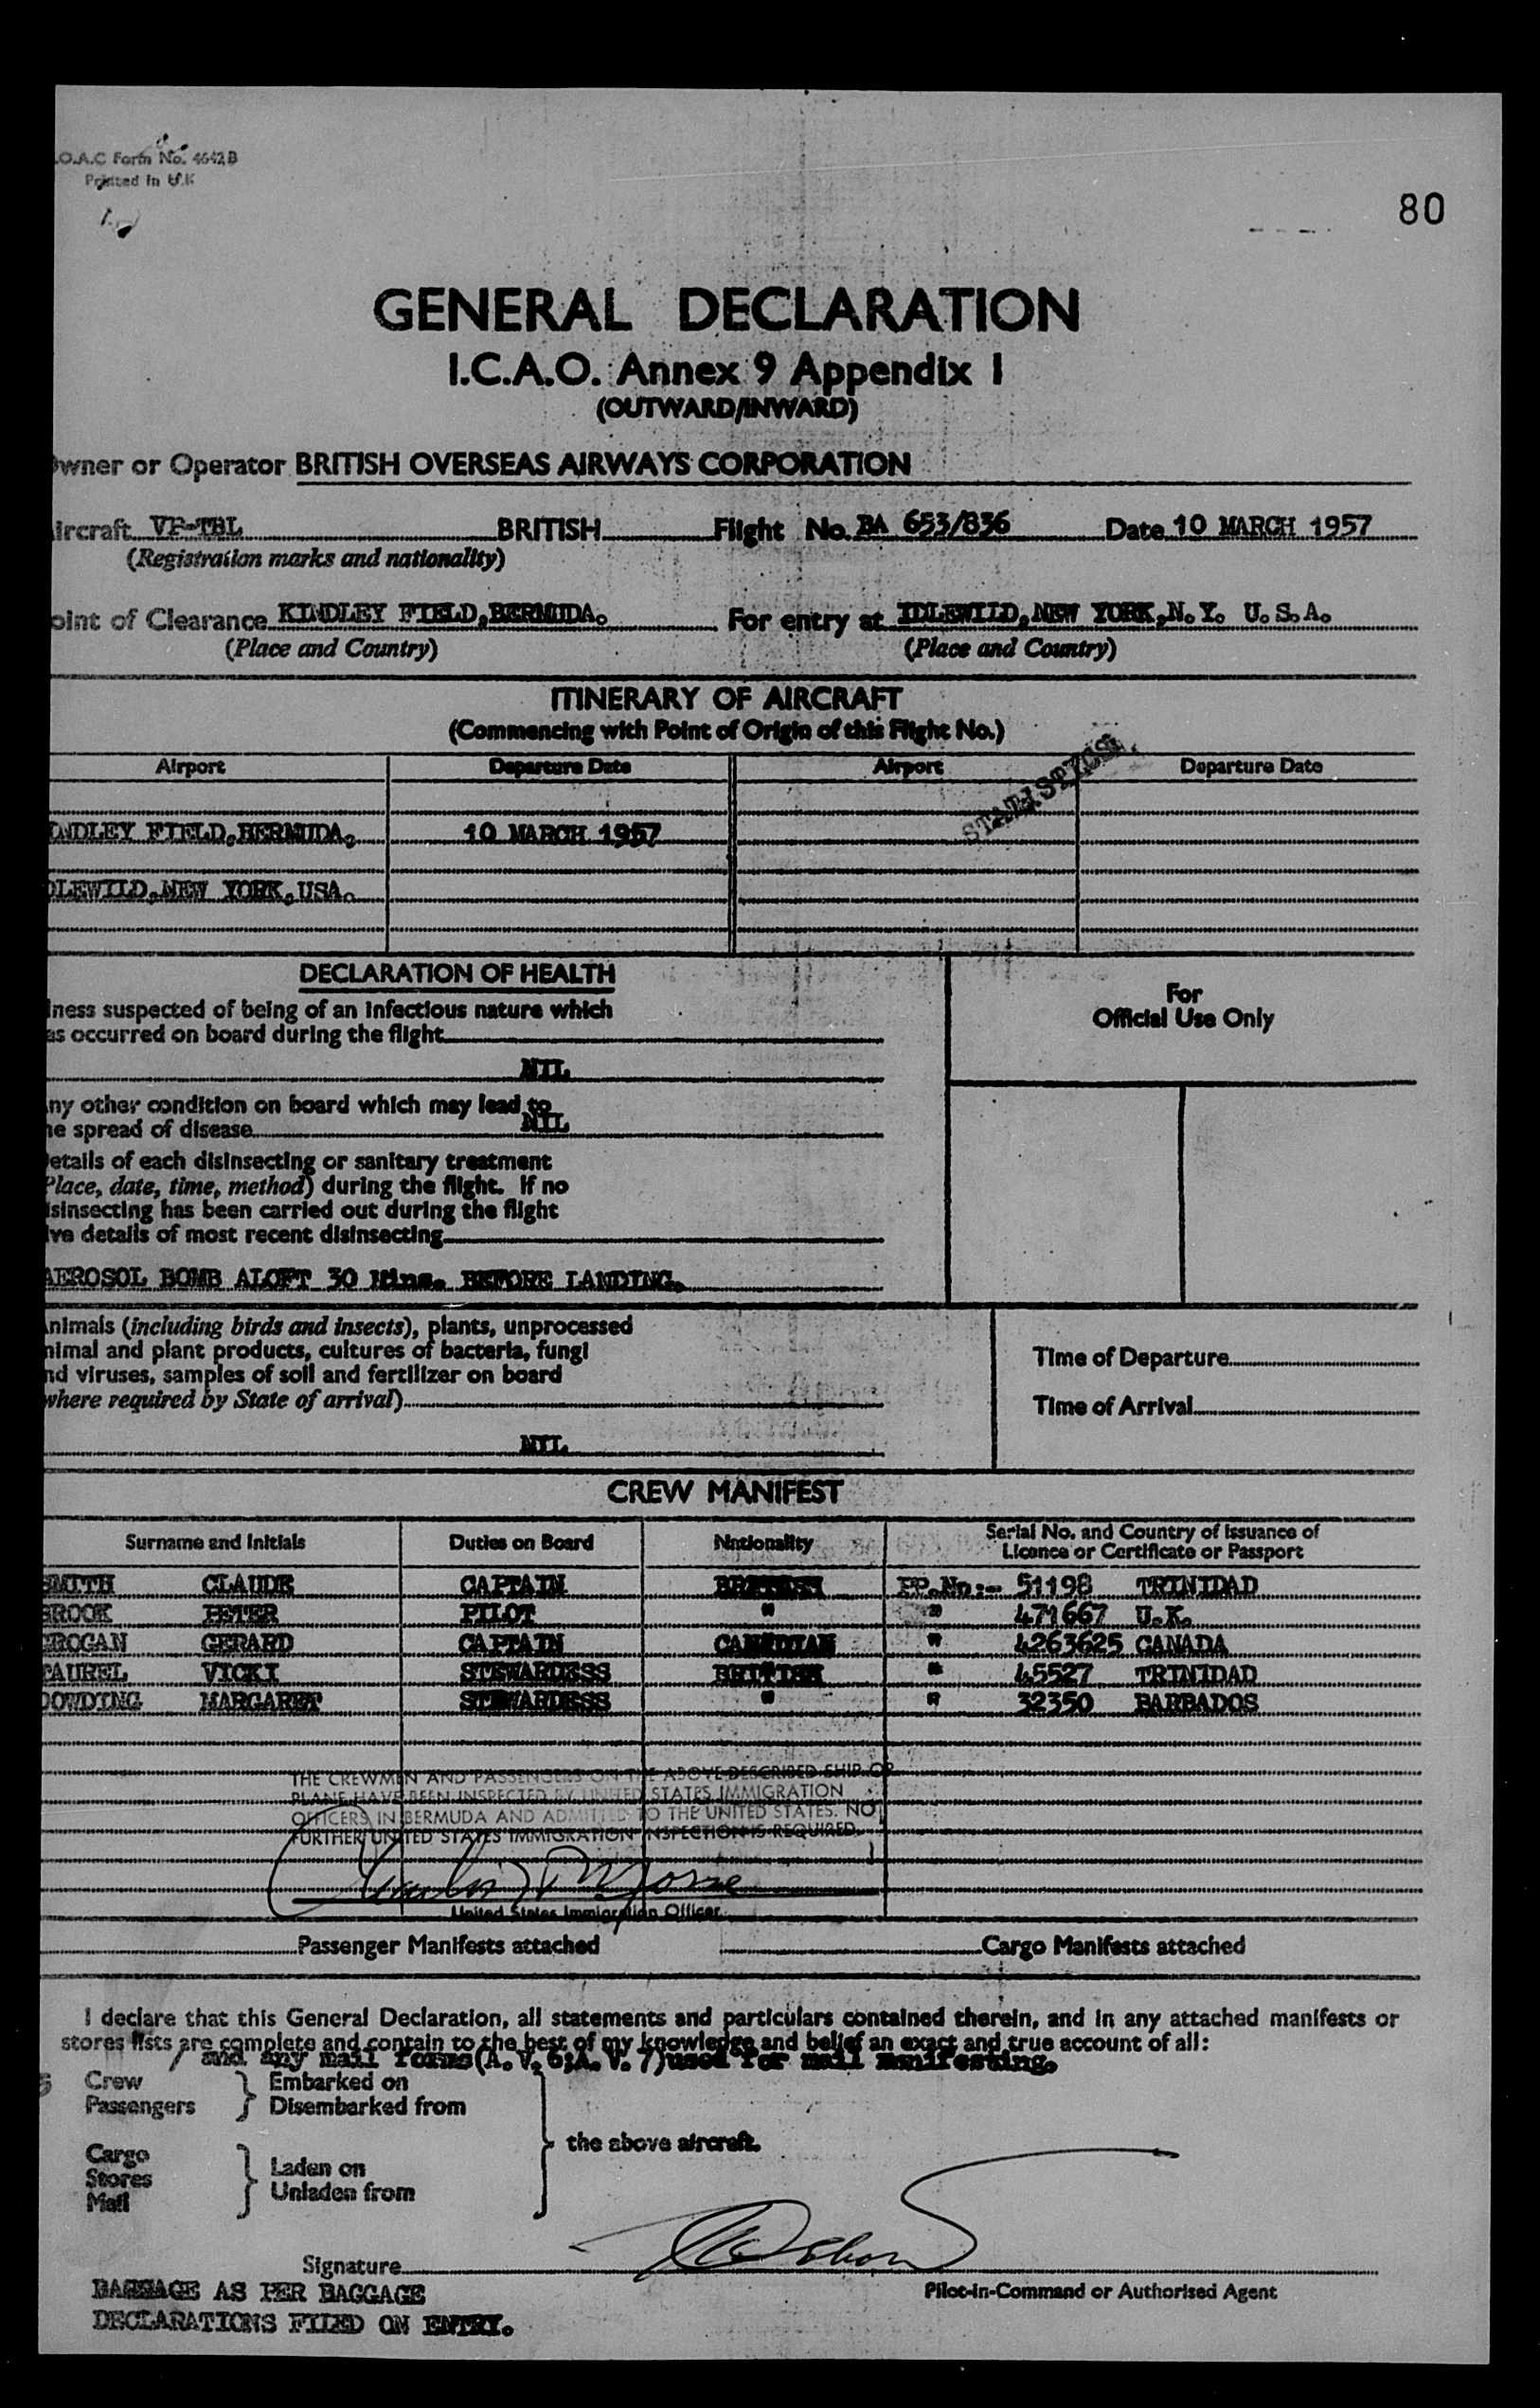 .O.A.C Form No. 4642B
Printed in U.K
80
GENERAL DECLARATION
I.C.A.O. Annex 9 Appendix 1
(OUTWARD/INWARD)
wner or Operator BRITISH OVERSEAS AIRWAYS CORPORATION
ircraft VP-TBL BRITISH Flight No. BA 653/836 Date 10 MARCH 1957
(Registration marks and nationality)
oint of Clearance KINDLEY FIELD, BERMUDA. For entry at IDLEWILD, NEW YORK, N.Y. U.S.A.
(Place and Country) (Place and Country)
ITINERARY OF AIRCRAFT
(Commencing with Point of Origin of this Flight No.)
Airport Departure Date Airport Departure Date
STATISTICAL
INDLEY FIELD, BERMUDA, 10 MARCH 1957
DLEWILD, NEW YORK, USA.
DECLARATION OF HEALTH
lness suspected of being of an infectious nature which
as occurred on board during the flight
NIL
ny other condition on board which may lead to
he spread of disease NIL
etails of each disinsecting or sanitary treatment
Place, date, time, method) during the flight. If no
isinsecting has been carried out during the flight
ive details of most recent disinsecting
AEROSOL BOMB ALOFT 30 Mins. BEFORE LANDING.
For
Official Use Only
nimals (including birds and insects), plants, unprocessed
nimal and plant products, cultures of bacteria, fungi
nd viruses, samples of soil and fertilizer on board
where required by State of arrival)
NIL
Time of Departure
Time of Arrival
CREW MANIFEST
Surname and Initials Duties on Board Nationality Serial No. and Country of Issuance of
Licence or Certificate or Passport
SMITH CLAUDE CAPTAIN BRITISH PP.No:- 51198 TRINIDAD
BROOK PETER PILOT " " 471667 U.K.
GROGAN GERARD CAPTAIN CANADIAN " 4263625 CANADA
TAUREL VICKI STEWARDESS BRITISH " 45527 TRINIDAD
DOWDING MARGARET STEWARDESS " " 32350 BARBADOS
THE CREWMEN AND PASSENGERS ON THE ABOVE DESCRIBED SHIP OR
PLANE HAVE BEEN INSPECTED BY UNITED STATES IMMIGRATION
OFFICERS IN BERMUDA AND ADMITTED TO THE UNITED STATES. NO
FURTHER UNITED STATES IMMIGRATION INSPECTION IS REQUIRED.
United States Immigration Officer
Passenger Manifests attached Cargo Manifests attached
I declare that this General Declaration, all statements and particulars contained therein, and in any attached manifests or
stores lists are complete and contain to the best of my knowledge and belief an exact and true account of all:
/ and any mail forms(A.V.6;A.V.7)used for mail manifesting.
5 Crew
Passengers } Embarked on
Disembarked from
the above aircraft.
Cargo
Stores
Mail } Laden on
Unladen from
Signature
Pilot-in-Command or Authorised Agent
BAGGAGE AS PER BAGGAGE
DECLARATIONS FILED ON ENTRY.